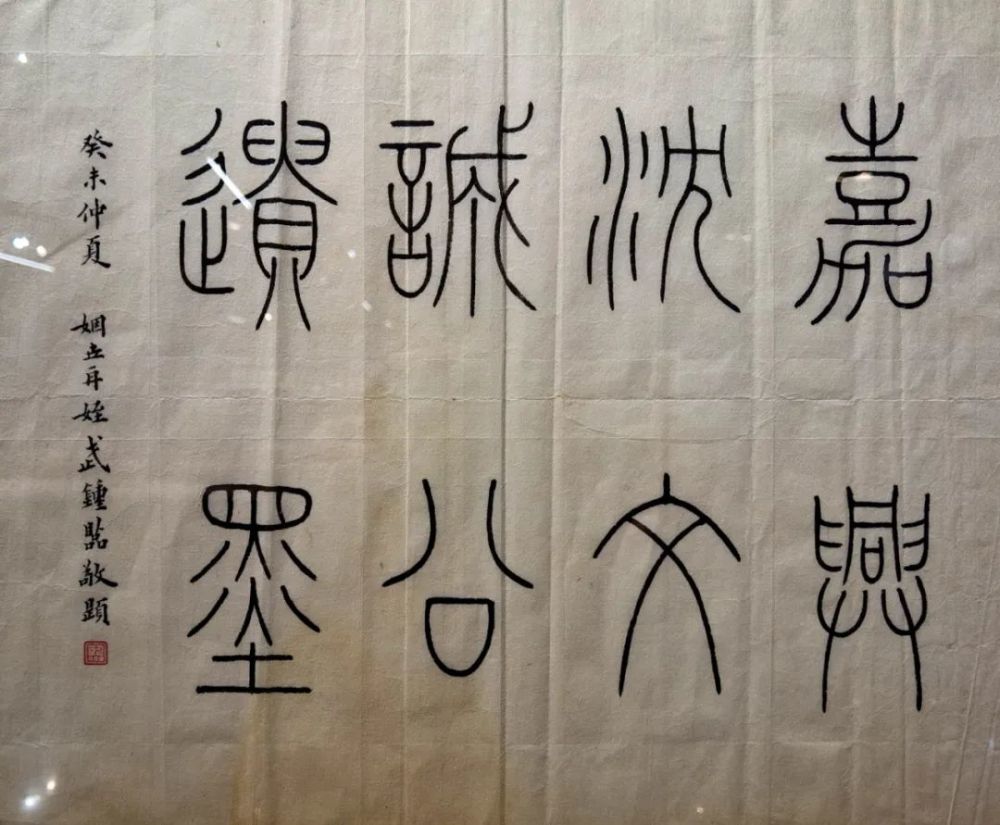 嘉興
沈文
誠公
遺墨
癸未仲夏 姻世再姪武鍾臨敬題